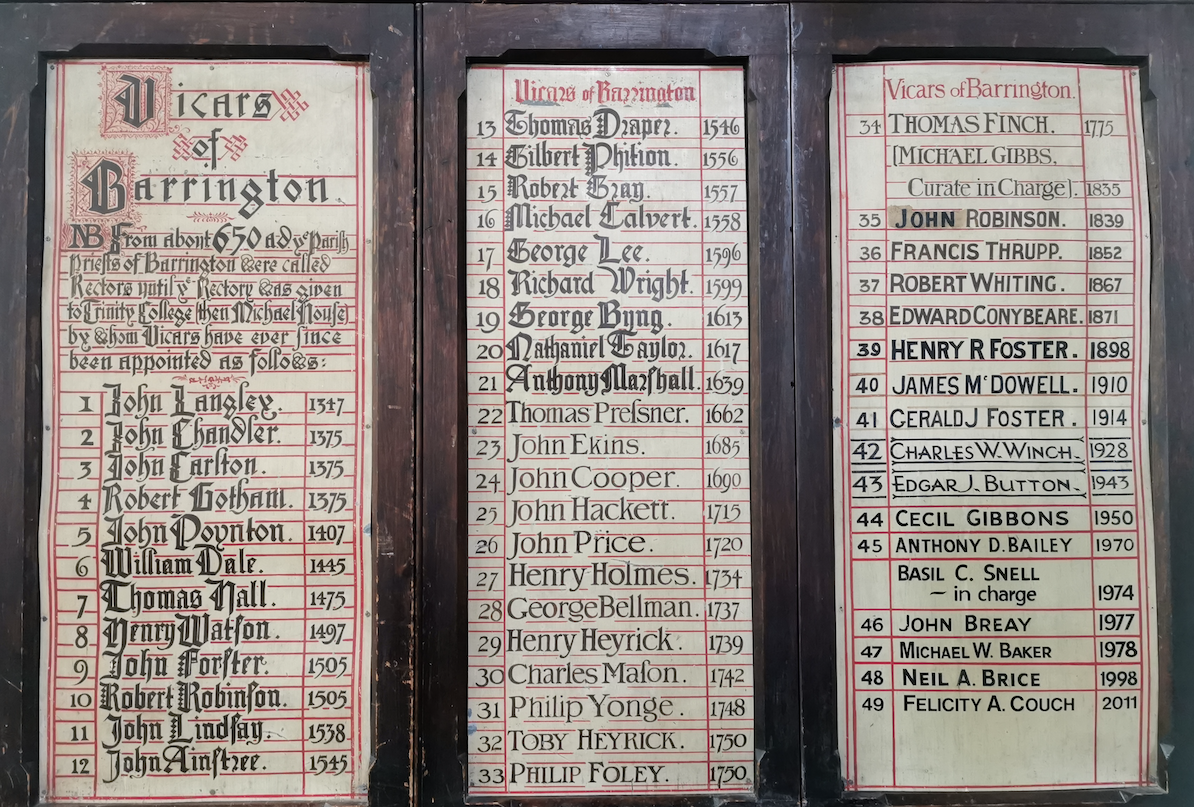 Vicars
of
Barrington
NB From about 650 a.d yᵉ Parish
Priests of Barrington were called
Rectors until yᵉ Rectory was given
to Trinity College (then Michael House)
by whom Vicars have ever since
been appointed as follows:
1 John Langley. 1347
2 John Chandler. 1375
3 John Carlton. 1375
4 Robert Gotham. 1375
5 John Poynton. 1407
6 William Dale. 1445
7 Thomas Hall. 1475
8 Henry Watſon. 1497
9 John Forſter. 1505
10 Robert Robinſon. 1505
11 John Lindſay. 1538
12 John Ainſtree. 1545
Vicars of Barrington
13 Thomas Draper. 1546
14 Gilbert Phition. 1556
15 Robert Gray. 1557
16 Michael Calvert. 1558
17 George Lee. 1596
18 Richard Wright. 1599
19 George Byng. 1613
20 Nathaniel Taylor. 1617
21 Anthony Marſhall. 1639
22 Thomas Preſsner. 1662
23 John Ekins. 1685
24 John Cooper. 1690
25 John Hackett. 1715
26 John Price. 1720
27 Henry Holmes. 1734
28 George Bellman. 1737
29 Henry Heyrick. 1739
30 Charles Maſon. 1742
31 Philip Yonge. 1748
32 TOBY HEYRICK. 1750
33 PHILIP FOLEY. 1750
Vicars of Barrington.
34 THOMAS FINCH. 1775
[MICHAEL GIBBS,
Curate in Charge]. 1835
35 JOHN ROBINSON. 1839
36 FRANCIS THRUPP. 1852
37 ROBERT WHITING. 1867
38 EDWARD CONYBEARE. 1871
39 HENRY R FOSTER. 1898
40 JAMES MᶜDOWELL. 1910
41 GERALD J FOSTER. 1914
42 CHARLES W. WINCH. 1928
43 EDGAR J. BUTTON. 1943
44 CECIL GIBBONS 1950
45 ANTHONY D. BAILEY 1970
BASIL C. SNELL
– in charge 1974
46 JOHN BREAY 1977
47 MICHAEL W. BAKER 1978
48 NEIL A. BRICE 1998
49 FELICITY A. COUCH 2011